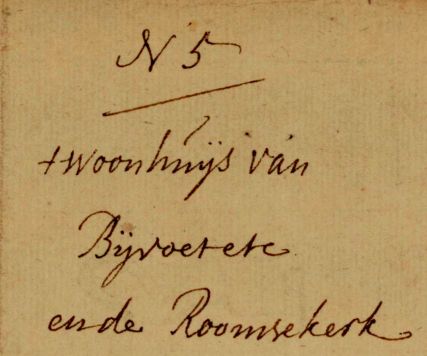 N 5
twoonhuijs van
Bijvoet etc
ende Roomsekerk